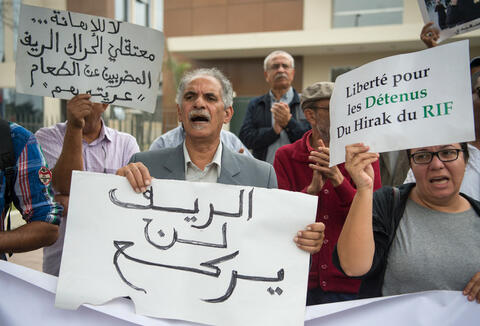 لا للإهانة ...
معتقلي الحراك الريف
المضربين عن الطعام
Liberté pour
les Détenus
Du Hirak du RIF
الريف
لن
يركع